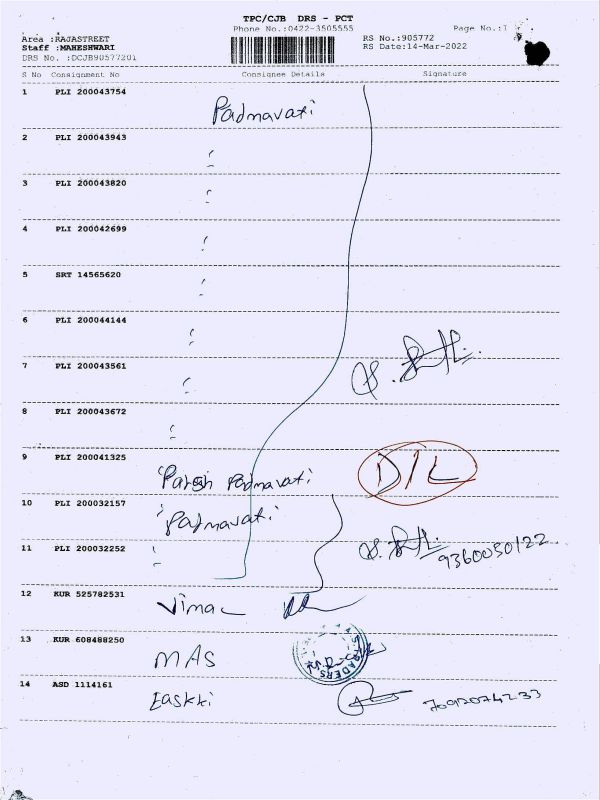 TPC/CJB DRS - PCT
Phone No.:0422-3505555
Page No.:1
Area :RAGASTREET
Staff :MAHESHWARI
DRS No. :DCJB90577201
RS No.:905772
RS Date:14-Mar-2022
S No Consignment No Consignee Details Signature
1 PLI 200043754 Padmavati
2 PLI 200043943
3 PLI 200043820
4 PLI 200042699
5 SRT 14565620
6 PLI 200044144
7 PLI 200043561
8 PLI 200043672
9 PLI 200041325 Padmavati D/L
10 PLI 200032157 Padmavati
11 PLI 200032252 9360050122
12 KUR 525782531 Vimal
13 KUR 608488250 MAS
14 ASD 1114161